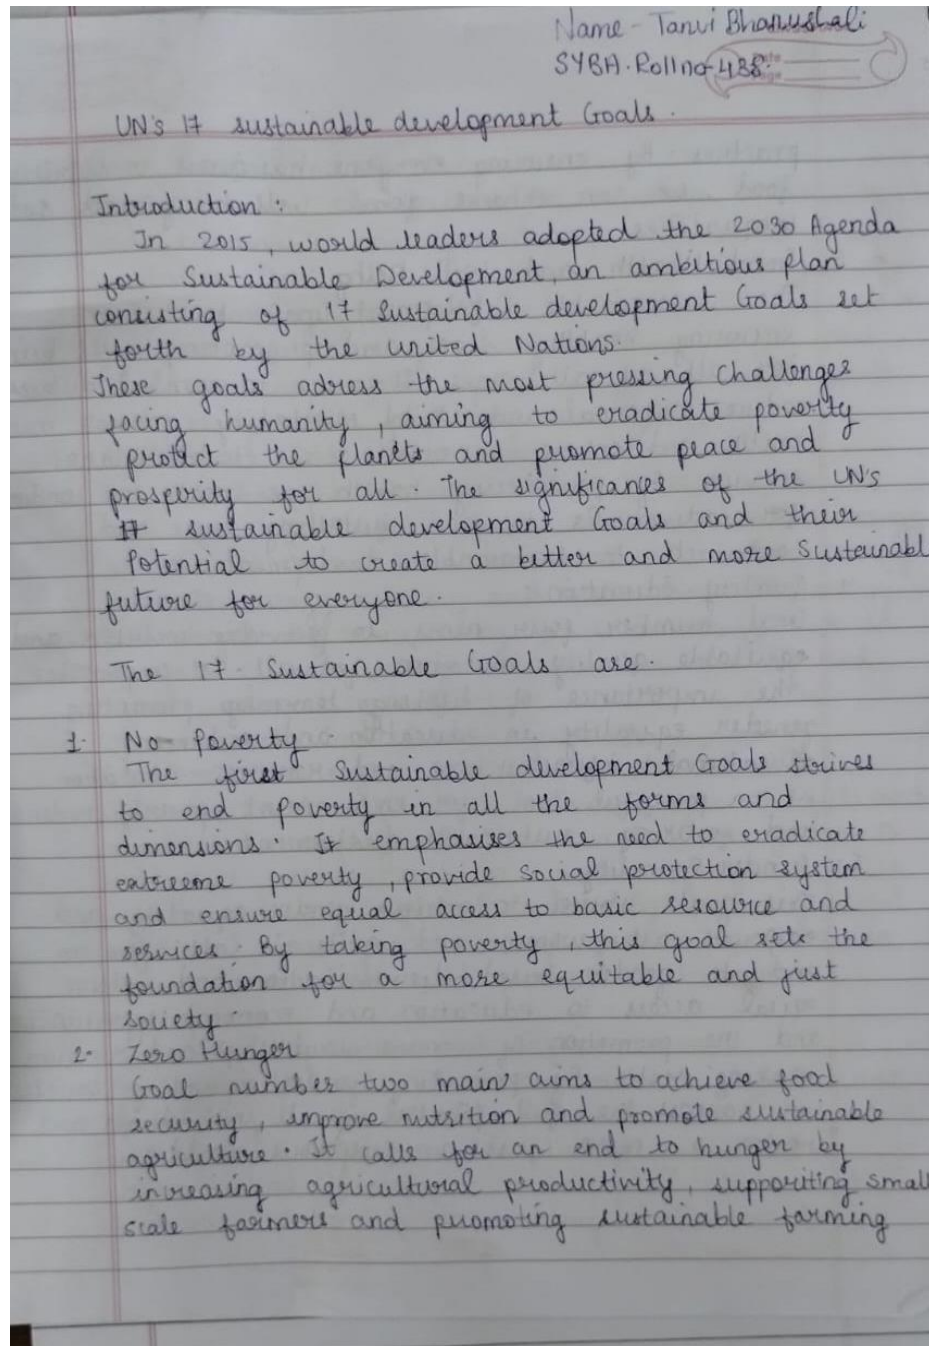 Name - Tanvi Bhanushali
SYBA. Roll no - 438.
UN's 17 sustainable development Goals.
Introduction :
In 2015, world leaders adopted the 2030 Agenda
for Sustainable Development, an ambitious plan
consisting of 17 Sustainable development Goals set
forth by the united Nations.
These goals adress the most pressing challenges
facing humanity, aiming to eradicate poverty
protect the planets and promote peace and
prosperity for all. The significances of the UN's
17 sustainable development Goals and their
Potential to create a better and more Sustainabl
future for everyone.
The 17 Sustainable Goals are.
1. No Poverty
The first Sustainable development Goals strives
to end poverty in all the forms and
dimensions. It emphasises the need to eradicate
extreeme poverty, provide social protection system
and ensure equal access to basic resource and
services. By taking poverty, this goal sets the
foundation for a more equitable and just
society.
2. Zero Hunger
Goal number two main aims to achieve food
security, improve nutrition and promote sustainable
agriculture. It calls for an end to hunger by
increasing agricultural productivity, supporiting small
scale farmers and promoting sustainable farming